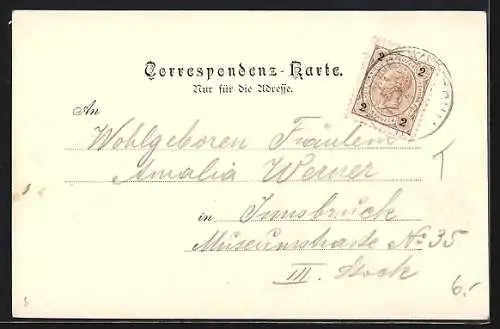 Correspondenz-Karte.
Nur für die Adresse.
2 2
2 2
An
Wohlgeboren Fräulein
Amalia Werner
in Innsbruck
Museumstrasse No 35
III. Stock
6.-